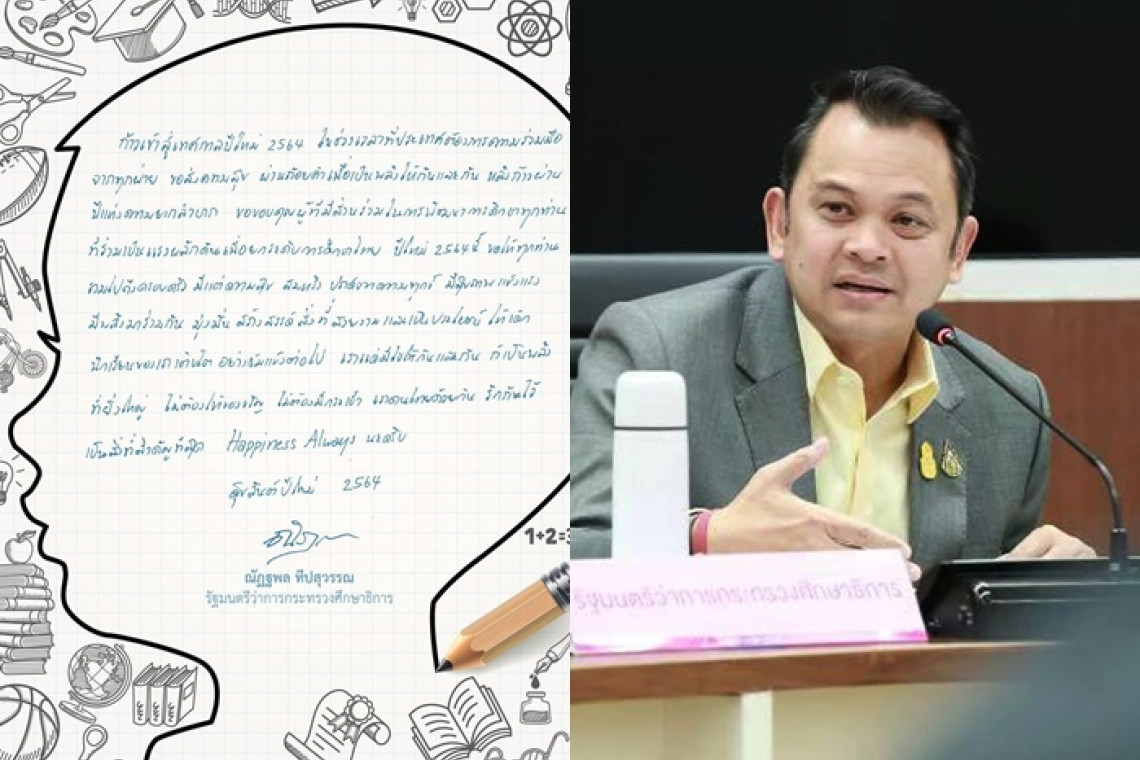 ก้าวเข้าสู่เทศกาลปีใหม่ 2564 ในช่วงเวลาที่ประเทศต้องการความร่วมมือ
จากทุกฝ่าย ขอส่งความสุข ผ่านถ้อยคำเพื่อเป็นพลังให้กันและกัน หลังก้าวผ่าน
ปีแห่งความยากลำบาก ขอขอบคุณผู้ที่มีส่วนร่วมในการพัฒนาการศึกษาทุกท่าน
ที่ร่วมเป็นแรงผลักดันเพื่อยกระดับการศึกษาไทย ปีใหม่ 2564 นี้ ขอให้ทุกท่าน
รวมไปถึงครอบครัว มีแต่ความสุข สมหวัง ปราศจากความทุกข์ มีสุขภาพแข็งแรง
มีพลังมาร่วมกัน มุ่งมั่น สร้างสรรค์ สิ่งที่สวยงามและเป็นประโยชน์ ให้เด็ก
นักเรียนของเราเติบโต อย่างเข้มแข็งต่อไป เราแค่มีใจให้กันและกัน ก็เป็นพลัง
ที่ยิ่งใหญ่ ไม่ต้องให้ของขวัญ ไม่ต้องมีกระเช้า เราคนไทยด้วยกัน รักกันไว้
เป็นสิ่งที่สำคัญที่สุด Happiness Always นะครับ
สุขสันต์ปีใหม่ 2564
ณัฏฐพล ทีปสุวรรณ
รัฐมนตรีว่าการกระทรวงศึกษาธิการ
1+2=3
รัฐมนตรีว่าการกระทรวงศึกษาธิการ